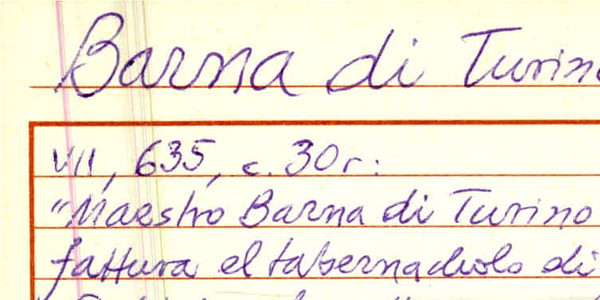 Barna di Turino
VII, 635, c. 30r:
"Maestro Barna di Turino
fattura el tabernacholo di